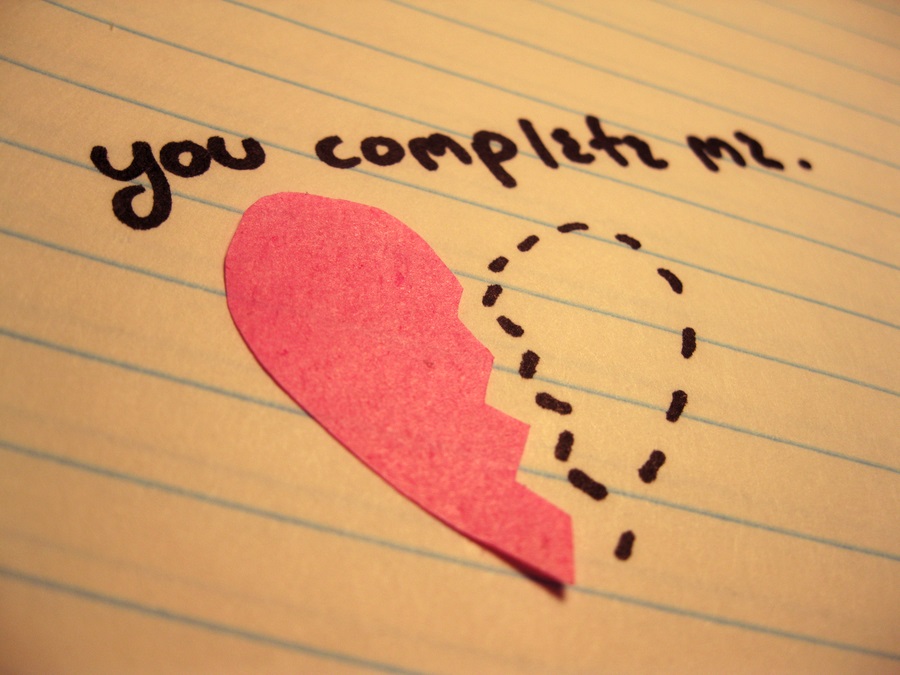 you complete me.